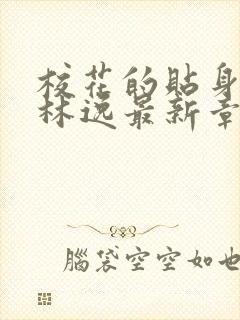 校花的貼身
林逸最新章
腦袋空空如也